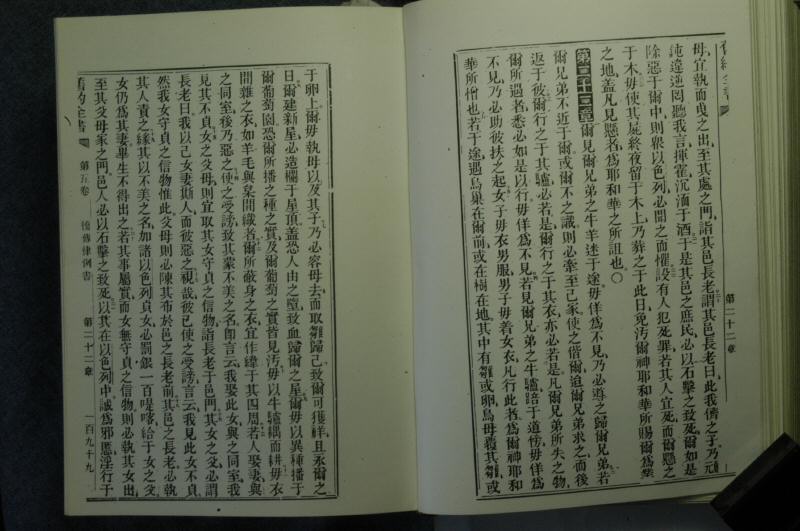 母、宜執而曳之出、至其處之門、詣其邑長老、謂其邑長老曰、此我儕之子乃
鈍違逆罔聽我言、揮霍沉湎于酒、于是其邑之庶民、必以石擊之致死、爾如是
除惡于爾中、則眾以色列必聞之而懼、設有人犯死罪、若其人宜死、而爾懸之
于木、毋使其屍終夜留于木上、乃葬之于此日、免汚爾神耶和華所賜爾爲業
之地、蓋凡見懸者、爲耶和華之所詛也〇
第二十二章 爾見爾兄弟之牛羊迷于途、毋佯爲不見、乃必導之歸爾兄弟、若
爾兄弟不近于爾、或爾不之識、則必牽至己家、使之偕爾、追爾兄弟求之、而後
返于彼、爾行之于其驢、必若是、爾行之于其衣、亦必若是、凡爾兄弟所失之物、
爾所遇者、悉必如是以行、毋佯爲不見、若見爾兄弟之牛驢踣于道傍、毋佯爲
不見、乃必助彼扶之起、女子毋衣男服、男子毋着女衣、凡行此者、爲爾神耶和
華所憎也、若于途遇鳥巢在爾前、或在樹在地、其中有雛或卵、鳥母覆其雛或
舊約全書
第二十二章
于卵上、爾毋執母以及其子、乃必容母去、而取雛歸己、致爾可獲祥、且永爾之
日、爾建新屋、必造欄于屋頂、蓋恐人由之墮、致血歸爾之屋、爾毋以異種播于
爾葡萄園、恐爾所播之種之實、及爾葡萄之實皆見汚、毋以牛驢耦而耕、毋衣
間雜之衣、如羊毛與枲間織者、爾所蔽身之衣、宜作繸于其四周、若人娶妻、與
之同室後、乃惡之、使之受謗、致其蒙不美之名、卽言云、我娶此女、與之同室、我
見其不貞、女之父母、則宜取其女守貞之信物、詣長老于邑門、其女之父、必謂
長老曰、我以己女妻斯人、而彼惡之、視哉、彼已使之受謗、言云、我見此女不貞、
然我女守貞之信物惟此、父母則必陳其布於邑之長老前、其邑之長老、必執
其人責之、緣其以不美之名、加諸以色列貞女、必罰銀一百㖷喀、給于女之父、
女仍爲其妻、畢生不得出之、若其事屬實、而女無守貞之信物、則必執其女、出
至其父母家之門、邑人必以石擊之致死、以其在以色列中誠爲邪慝、淫行于
舊約全書 第五卷 復傳律例書 第二十二章 一百九十九